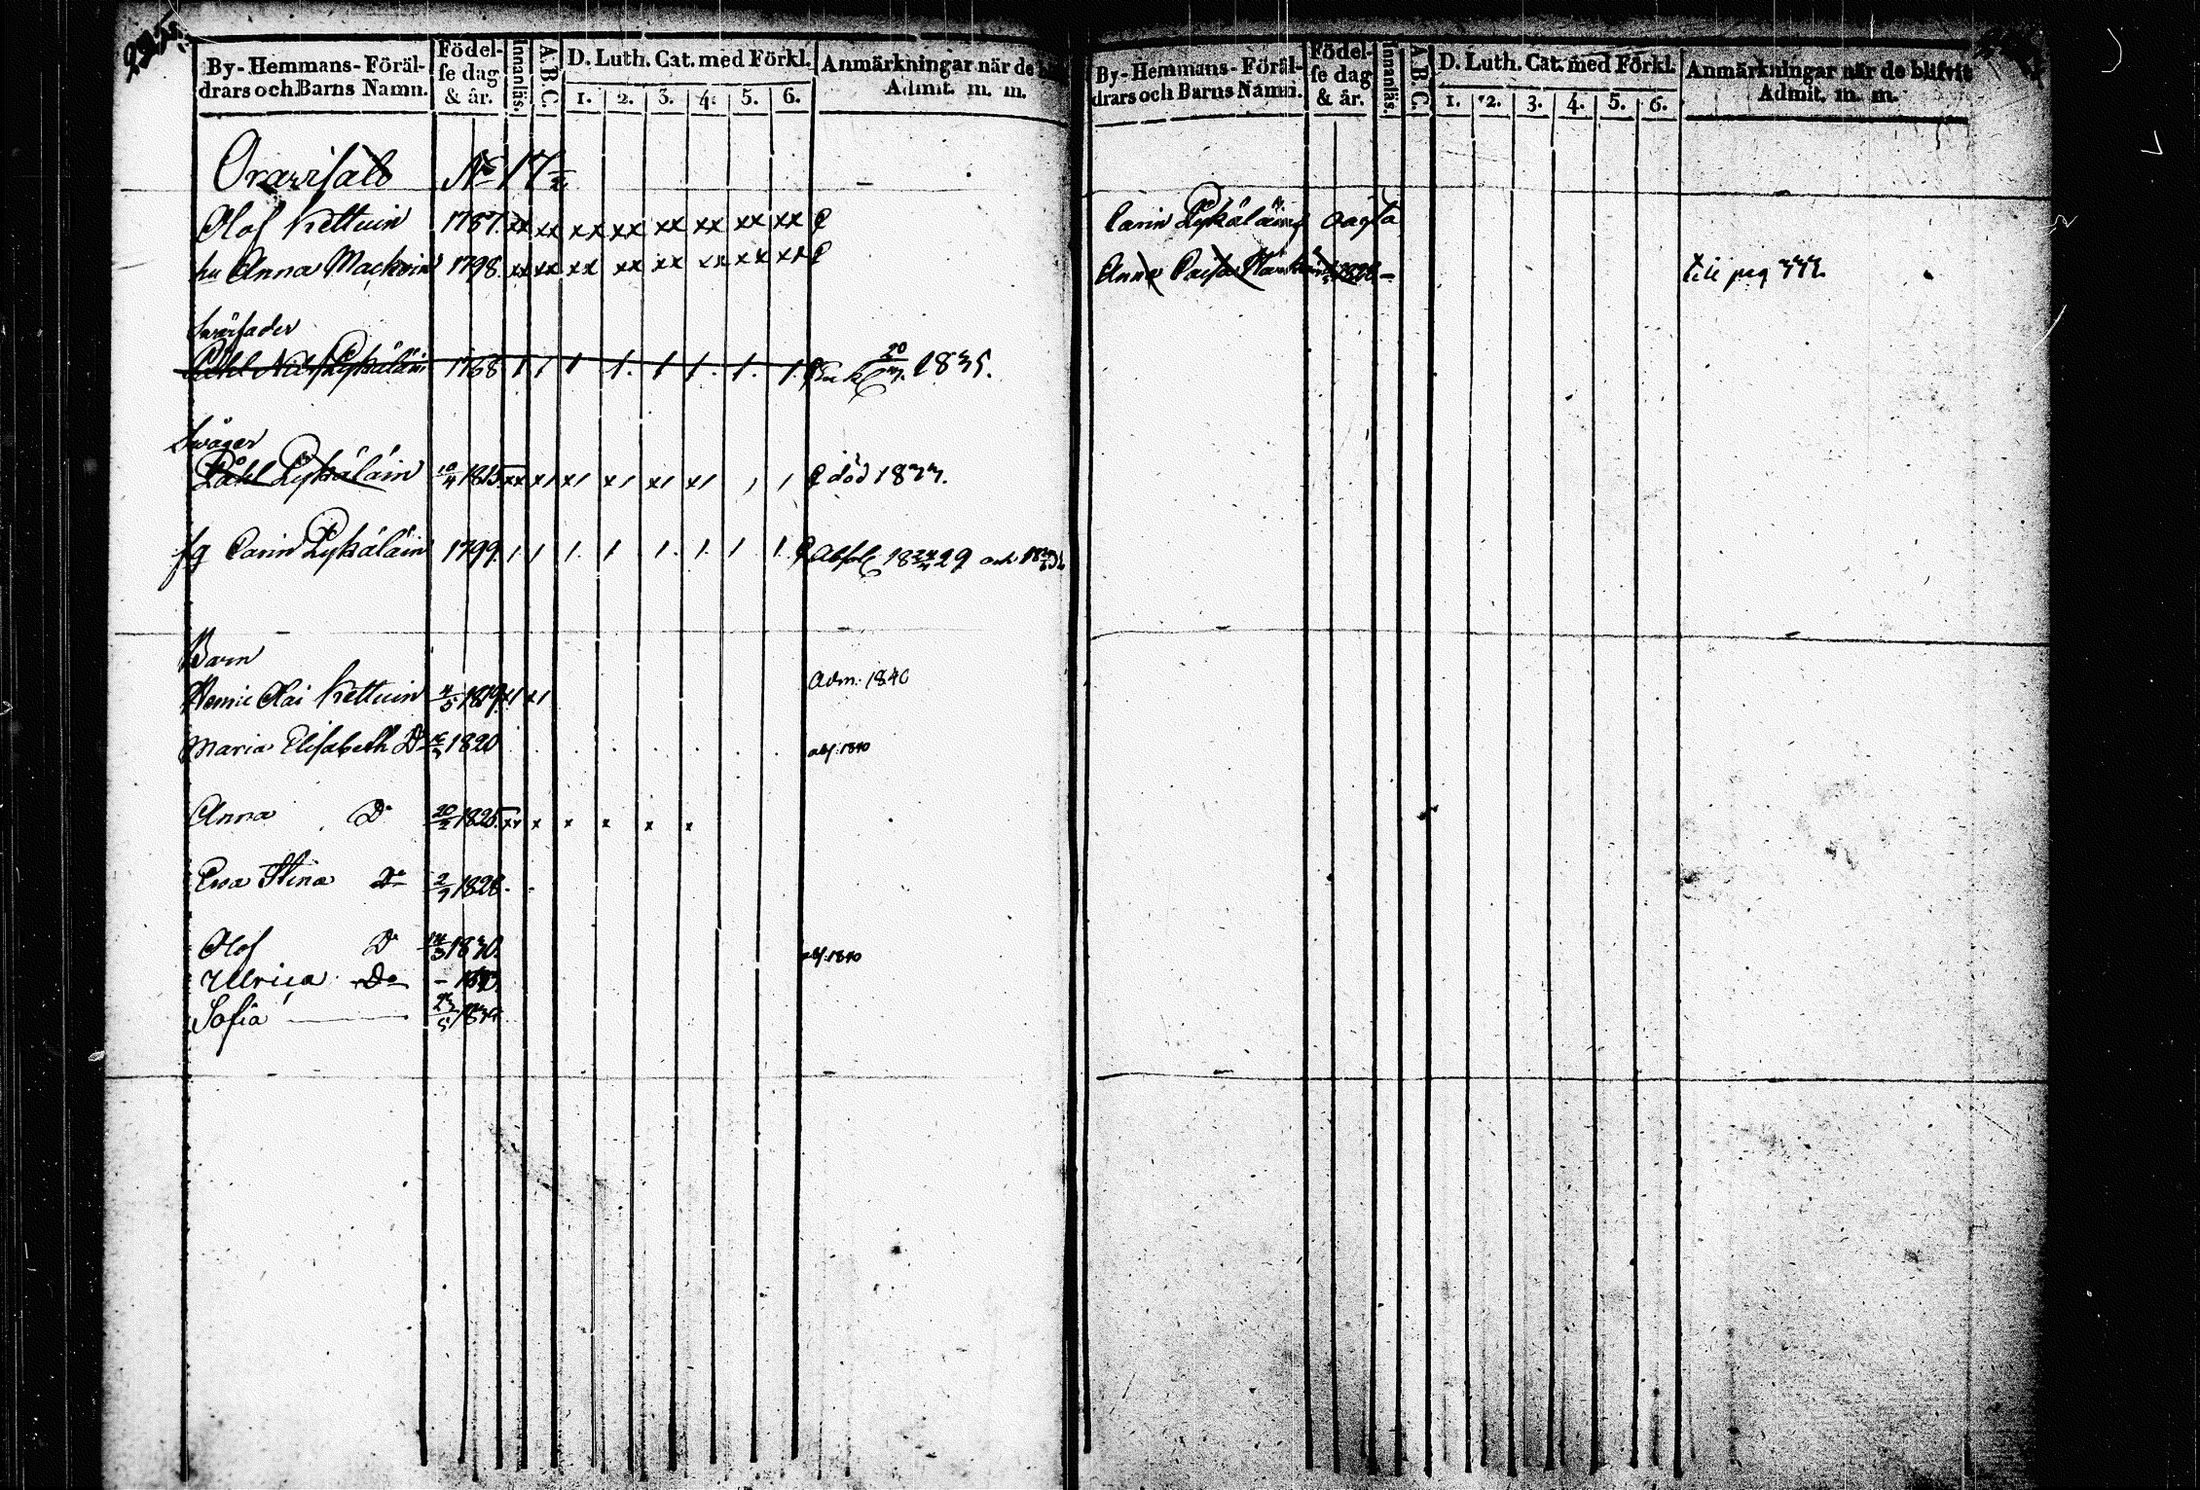 By-Hemmans-Föräl-
drars och Barns Namn.
Födel-
se dag
& år.
Innanläs.
A.B.C.
D. Luth. Cat. med Förkl.
1. 2. 3. 4. 5. 6.
Anmärkningar når de
Admit. m. m.
Oravisalo No 17
Olof Kettuin 1787. xx xx xx xx xx xx xx xx
hu Anna Mackoin 1798. xx xx xx xx xx xx xx xx
Swärfader
Påhl Lyykäläin 1768 1 1 1 1. 1 1 1. 1. 20 1835.
Swåger
Påhl Lyykäläin 10/4 1815 xx x1 x1 x1 x1 x1 1 1 död 1833.
Carin Lyykäläin 1799. 1. 1 1. 1 1. 1. 1 1. 29 och
Barn
Henric Olai Kettuin 4/5 1819. x1 x1 Adm. 1840
Maria Elisabeth Do 1820 abs: 1840
Anna Do 20/2 1825. xx x x x x x
Ewa Stina Do 2/9 1828.
Olof Do 14/3 1830. abs: 1840
Ulrica Do
Sofia 23/5
By-Hemmans-Föräl-
drars och Barns Namn.
Födel-
se dag
& år.
Innanläs.
A.B.C.
D. Luth. Cat. med Förkl.
1. 2. 3. 4. 5. 6.
Anmärkningar når de blifvit
Admit. m. m.
Carin Lyykäläin oägta
Anna Caisa 1828 till pag 777.